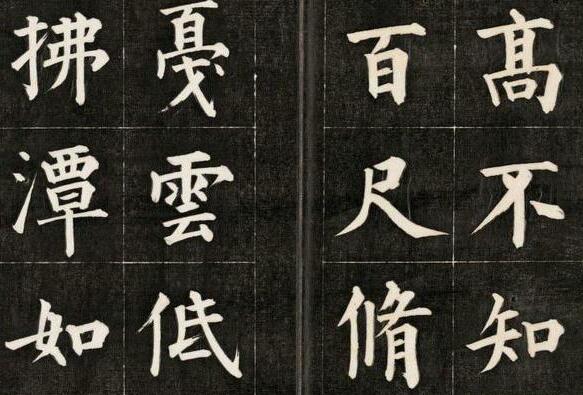 髙不知
百尺脩
戛雲低
拂潭如